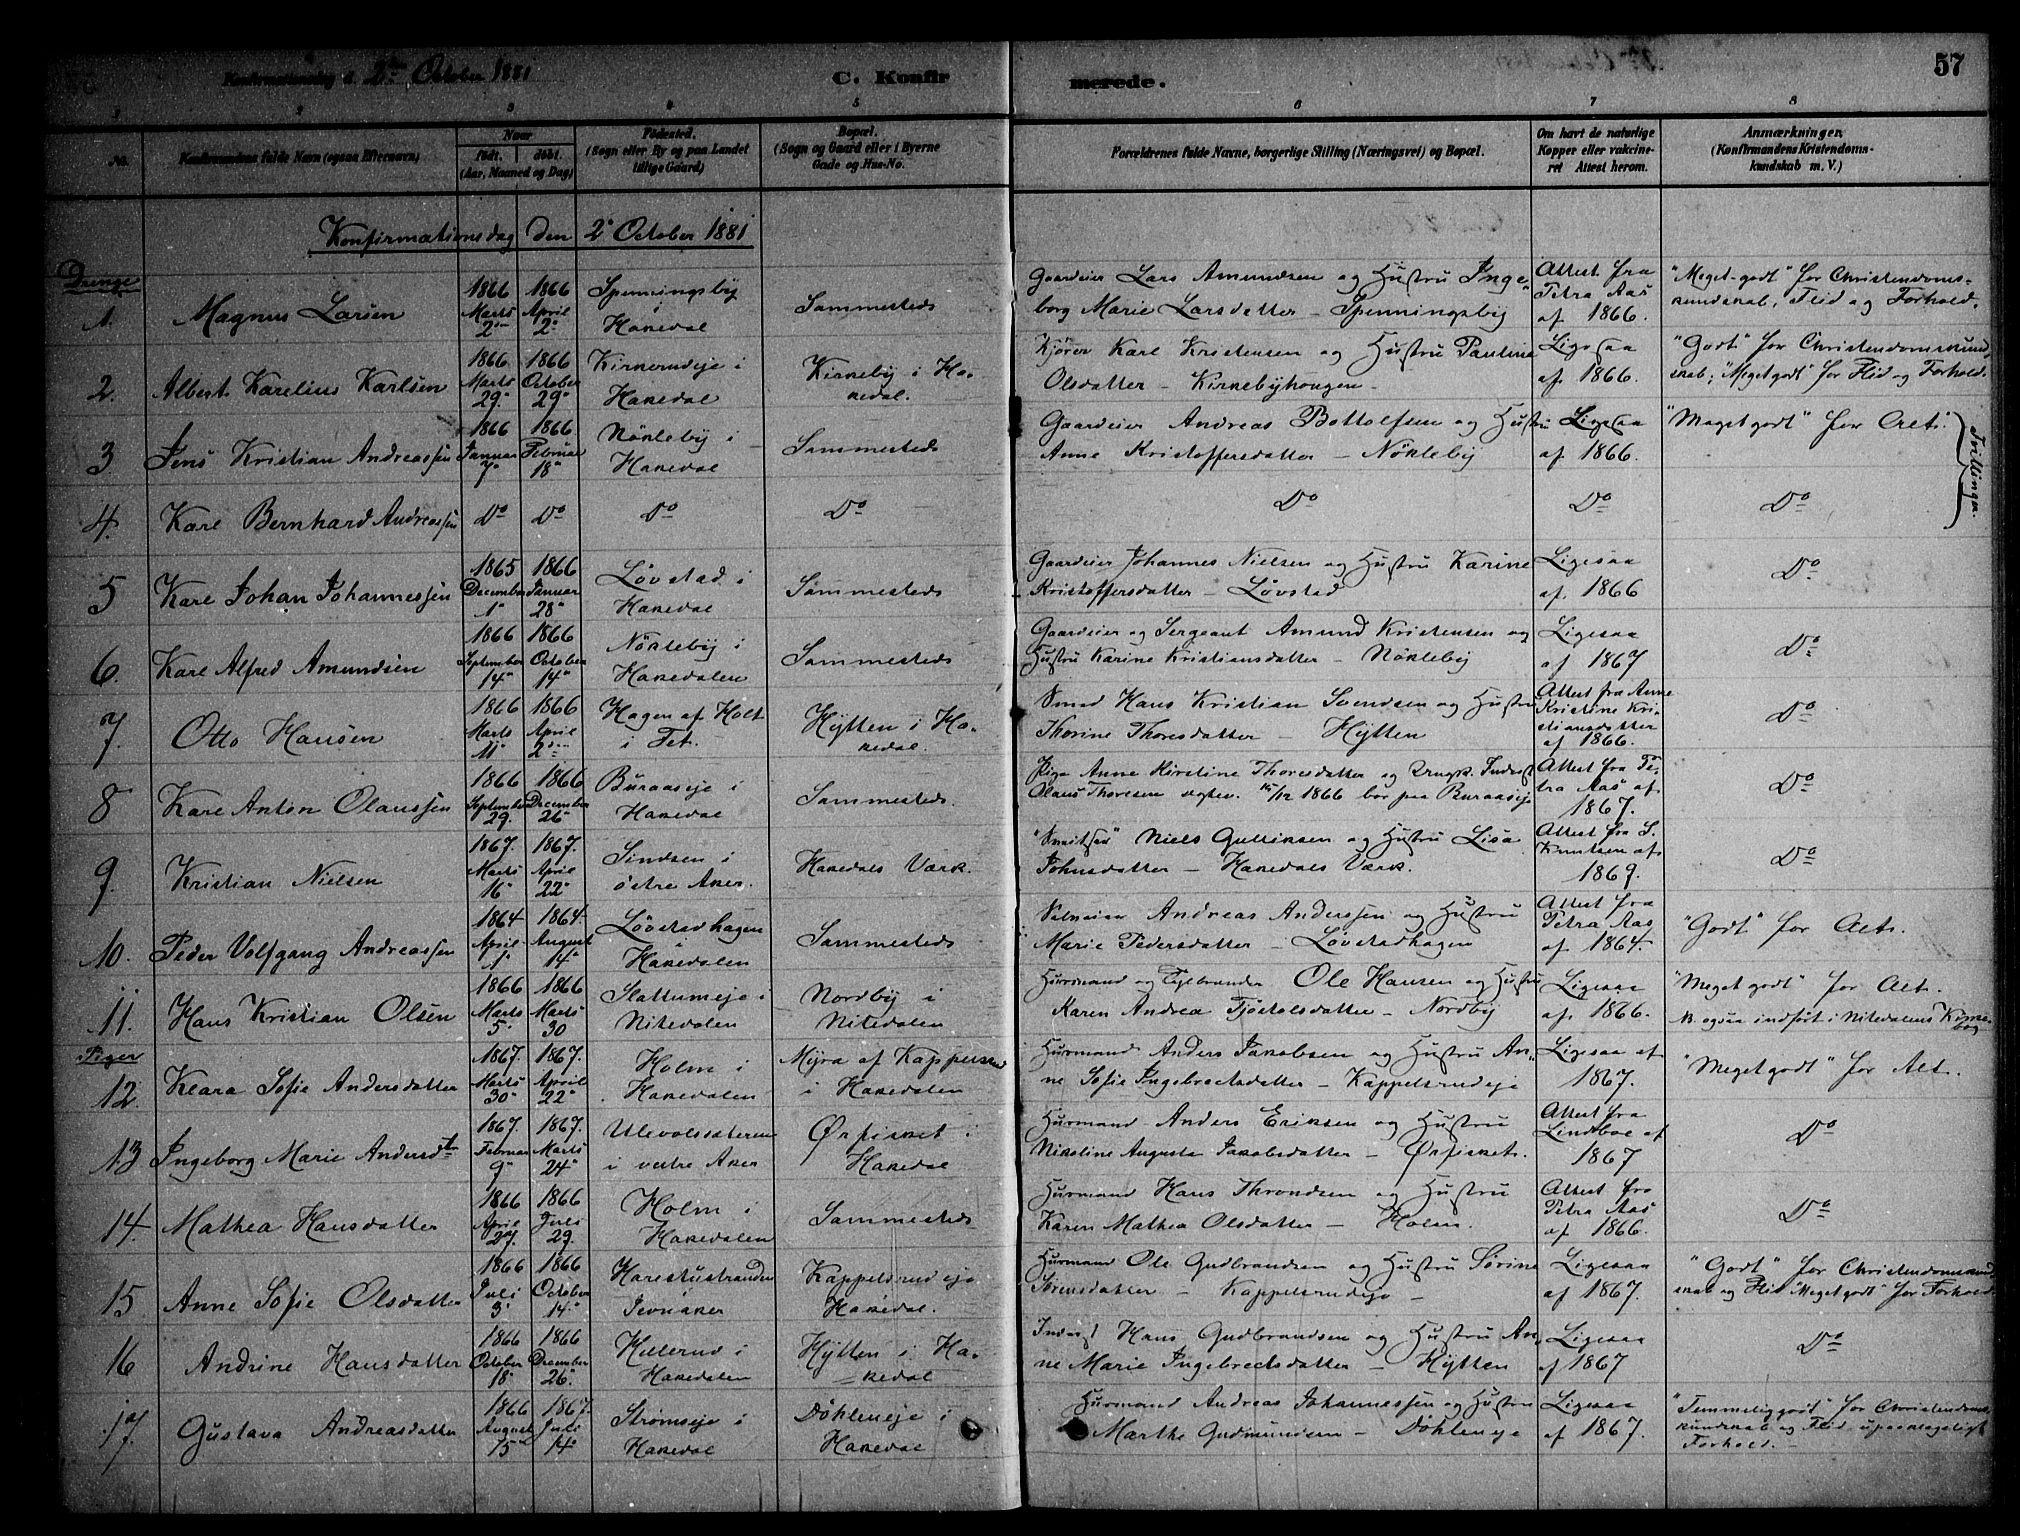 Konfirmationsdag d. 2den October 1881
C. Konfirmerede.
57
1 2 3 4 5 6 7 8
No.
Konfirmandens fulde Navn (ogsaa Efternavn)
Naar
født. døbt.
(Aar, Maaned og Dag)
Fødested.
(Sogn eller By og paa Landet
tillige Gaard)
Bopæl.
(Sogn og Gaard eller i Byerne
Gade og Hus-No.
Forældrenes fulde Navne, borgerlige Stilling (Næringsvei) og Bopæl.
Om havt de naturlige
Kopper eller vakcine-
ret Attest herom.
Anmærkninger,
(Konfirmandens Kristendoms-
kundskab m. V.)
Konfirmationsdag den 2 October 1881
Drenge
1. Magnus Larsen
1866 Marts 2
1866 April 2
Spenningsby i
Hakedal
Sammesteds
Gaardeier Lars Amundsen og Hustru Inge-
borg Marie Larsdatter – Spenningsby
Attest fra
Petra Aas
af 1866.
"Meget godt" for Christendoms-
kundskab, Flid og Forhold.
2. Albert Karelius Karlsen
1866 Marts 29
1866 October 29
Kirkerudeje i
Hakedal
Kirkeby i Ha-
kedal.
Kjører Karl Kristensen og Hustru Pauline
Olsdatter – Kirkebyhaugen –
Ligesaa
af 1866.
"Godt" for Christendomskund-
skab; "Meget godt" for Flid og Forhold.
3 Jens Kristian Andreassen
1866 Januar 7
1866 Februar 18
Nökleby i
Hakedal
Sammesteds
Gaardeier Andreas Bottolfsen og Hustru
Anne Kristoffersdatter – Nökleby
Ligesaa
af 1866.
"Meget godt" for Alt.
Tvillinger.
4. Karl Bernhard Andreassen
Do Do Do Do Do Do Do
5 Karl Johan Johannessen
1865 December 1
1866 Januar 28
Løvstad i
Hakedal
Sammesteds
Gaardeier Johannes Nielsen og Hustru Karine
Kristoffersdatter – Løvstad
Ligesaa
af 1866
Do
6. Karl Alfred Amundsen
1866 September 14
1866 October 14
Nökleby i
Hakedalen
Sammesteds
Gaardeier og Sergeant Amund Kristensen og
Hustru Karine Kristiansdatter – Nökleby
Ligesaa
af 1867
Do
7. Otto Hansen
1866 Marts 11
1866 April 2
Hagen af Holt
i Fet.
Hytten i Ha-
kedal.
Smed Hans Kristian Svendsen og Hustru
Thorine Thoresdatter – Hytten
Attest fra Anne
Kristine Kri-
stiansdatter
af 1866.
Do
8 Karl Anton Olaussen
1866 September 29.
1866 December 26
Buraaseje i
Hakedal
Sammesteds.
Pige Anne Kirstine Thoresdatter og Ungk. Inderst
Olaus Thoresen 1866 bor paa Buraaseje
Attest fra Pe-
tra Aas af
1867.
Do
9. Kristian Nielsen
1867. Marts 16
1867. April 22
Sindsen i
östre Aker.
Hakedals Værk.
Niels Gulliksen og Hustru Lisa
Johnsdatter – Hakedals Værk.
Attest fra S.
Knutsen af
1869.
Do
10. Peder Volfgang Andreassen
1864 April 1
1864 August 14
Løvstadhagen
i Hakedalen
Sammesteds
Andreas Anderssen og Hustru
Marie Pedersdatter – Løvstadhagen
Attest fra
Petra Aas
af 1864
"Godt" for Alt.
11. Hans Kristian Olsen
1866 Marts 5
1866 Marts 30
Slattumeje i
Nitedalen
Nordby i
Nitedalen
Husmand og Ole Hansen og Hustru
Karen Andrea Tjøstolsdatter – Nordby
Ligesaa
af 1866.
"Meget godt" for Alt.
NB. ogsaa indført i Nitedalens Kirke-
bog
Piger
12. Klara Sofie Andersdatter
1867. Marts 30
1867. April 22
Holm i
Hakedalen
Myra af Kappelsrud
i Hakedalen
Husmand Anders Jakobsen og Hustru An-
ne Sofie Ingebretsdatter – Kappelsrudeje
Ligesaa af
1867.
"Meget godt" for Alt.
13 Ingeborg Marie Andersdtr
1867. Februar 9
1867. Marts 24
Ulevolsæteren
i vestre Aker
Ørfisket i
Hakedal
Husmand Anders Eriksen og Hustru
Nikoline Augusta Jakobsdatter – Ørfisket.
Attest fra
Lindboe af
1867
Do
14. Mathea Hansdatter
1866 April 27
1866 Juli 29.
Holm i
Hakedalen
Sammesteds
Husmand Hans Throndsen og Hustru
Karen Mathea Olsdatter – Holm.
Attest fra
Petra Aas
af 1866.
Do
15 Anne Sofie Olsdatter
1866 Juli 3
1866 October 14
Harestustranden
Jevnaker
Kappelsrudeje
Hakedal.
Husmand Ole Gudbrandsen og Hustru Sørine
Sørensdatter – Kappelsrudeje –
Ligesaa
af 1867.
"Godt" for Christendomskund-
skab og Flid "Meget godt" for Forhold.
16 Andrine Hansdatter
1866 October 18
1866 December 26.
Hellerud i
Hakedalen
Hytten i Ha-
kedal
Inderst Hans Gudbrandsen og Hustru An-
ne Marie Ingebretsdatter – Hytten
Ligesaa
af 1867
Do
17. Gustava Andreasdatter
1866 August 15
1867. Juli 14
Strømseje i
Hakedal
Døhleneje i
Hakedal
Husmand Andreas Johannessen og Hustru
Marthe Gudmundsen – Døhleneje
Ligesaa
af 1867.
"Temmelig godt" for Christendoms-
kundskab og Flid upaaklageligt
Forhold. –